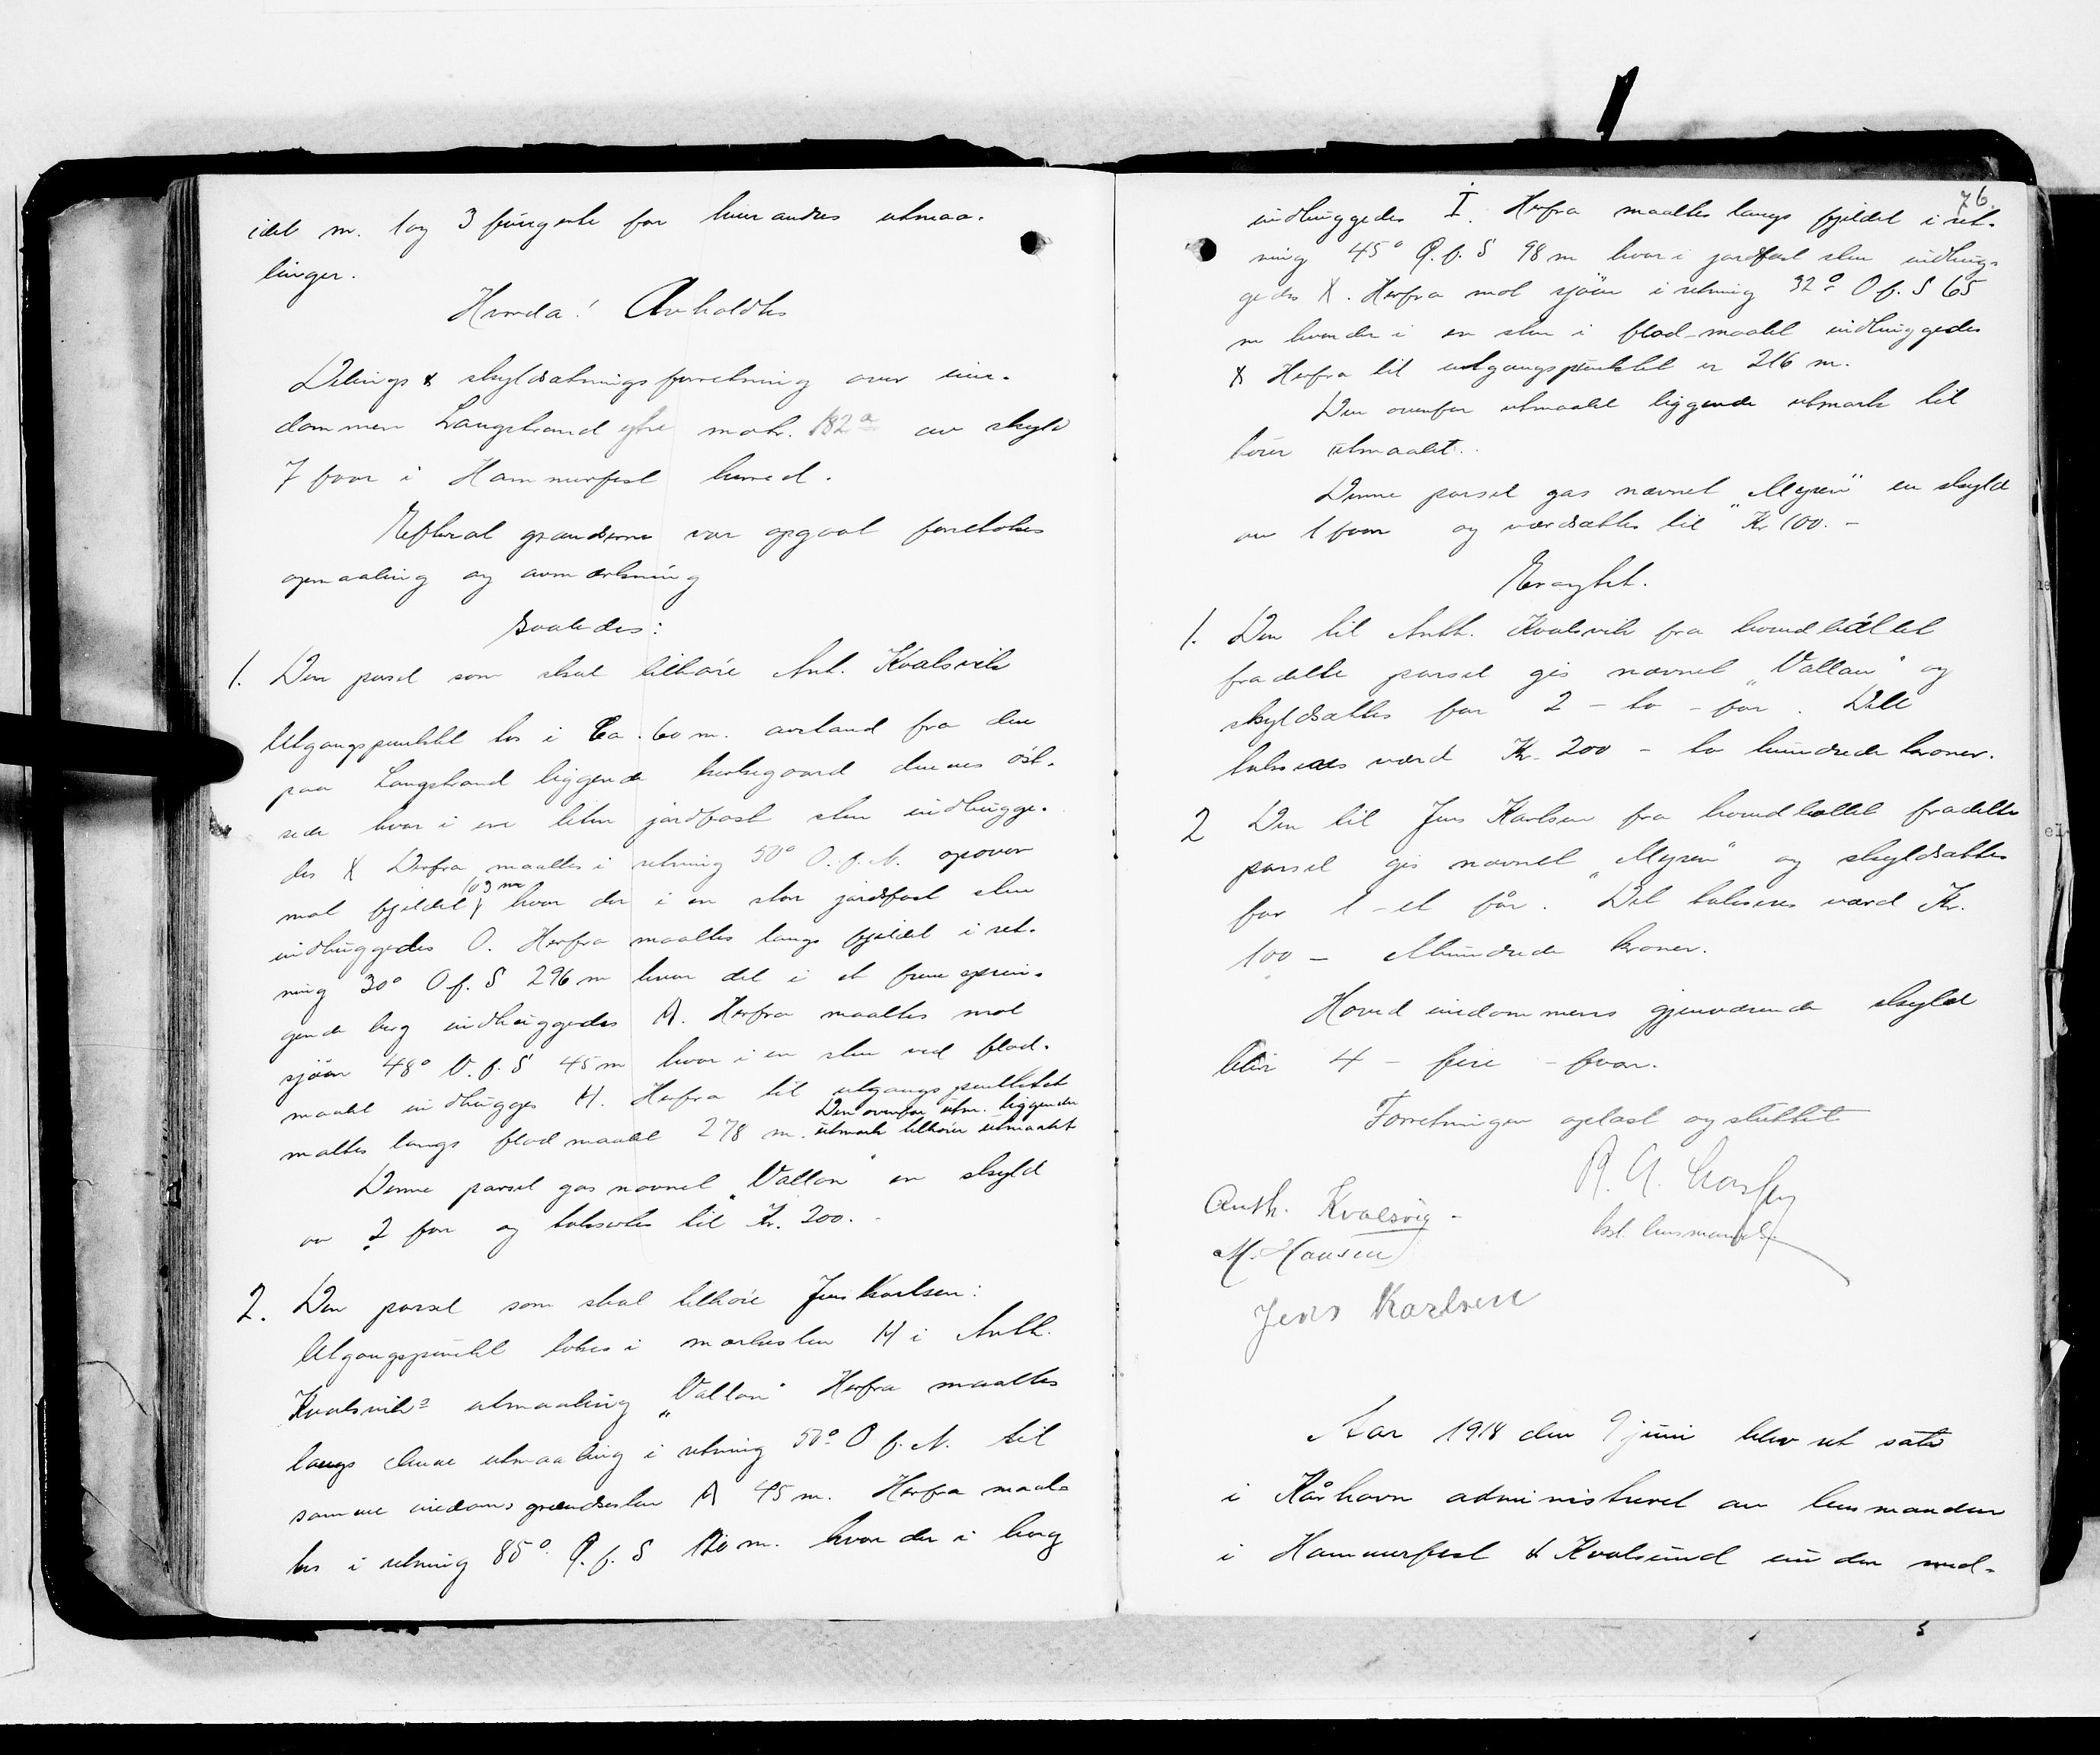 idet nr. 1 og 3 fungerte for hverandres utmaa-
linger.
Hvorda! Avholdtes
Delings & skyldsætningsforretning over eien-
dommen Langstrand ytre matr. 182a av skyld
7 faar i Hammerfest herred.
Efterat grændserne var opgaat foretokes
opmaaling og avmerkning
saaledes:
1. Den parsel som skal tilhøre Ant. Kvalsvik
Utgangspunktet tos i Ca. 60 m. avstand fra den
paa Langstrand liggende kirkegaard dennes øst-
side hvor i en liten jordfast sten indhugge-
des X Derfra maaltes i retning 50° O. f. N. opover
mot fjeldet 103 m hvor der i en stor jordfast sten
indhuggedes O. Herfra maaltes langs fjeldet i ret-
ning 30° O f. S 296 m hvor det i et frem sprin-
gende berg indhuggedes A. Herfra maaltes mot
sjøen 48° V. f. S 45 m hvor i en sten ved flod-
maalet indhugges H. Herfra til utgangspunktet
maltes langs flodmaalet 278 m. Den ovenfor utm. liggende
utmark tilhører utmaalet
Denne parsel gas navnet „Vallan“ en skyld
av 2 faar og takseres til Kr. 200.-
2. Den parsel som skal tilhøre Jens Karlsen:
Utgangspunktet tokes i merkesten H i Anth.
Kvalsviks utmaaling „Vallan“ Herfra maaltes
langs denne utmaaling i retning 50° O f. N. til
samme eiendoms grændsesten A 45 m. Herfra maal-
tes i retning 85° O. f. S 120 m. hvor der i berg
76.
indhuggedes I. Herfra maaltes langs fjeldet i ret-
ning 45° O. f. S 98 m hvor i jordfast sten indhug-
gedes X. Herfra mot sjøen i retning 32° O f. S 65
m hvor der i en sten i flod-maalet indhuggedes
X Herfra til utgangspunktet er 216 m.
Den ovenfor utmaalet liggende utmark til
hører utmaalet.
Denne parsel gas navnet „Myren“ en skyld
av 1 faar og værdsættes til Kr 100.-
Eragtet.
1. Den til Anth. Kvalsvik fra hovedbølet
fradelte parsel gis navnet „Vallan“ og
skyldsættes for 2 - to - får. Det
takseres værd Kr. 200 - to hundrede kroner.
2 Den til Jens Karlsen fra hovedbølet fradelte
parsel gis navnet „Myren“ og skyldsættes
for 1 - et får. Det takseres værd Kr.
100 - Ethundrede kroner.
Hoved eiendommens gjenværende skyld
blir 4 - fire - faar.
Forretningen oplæst og sluttet
Anth. Kvalsvig -
M. Hansen
Jens Karlsen
Aar 1918 den 9 juni blev ret sat
i Kårhavn administreret av lensmanden
i Hammerfest & Kvalsund under med-